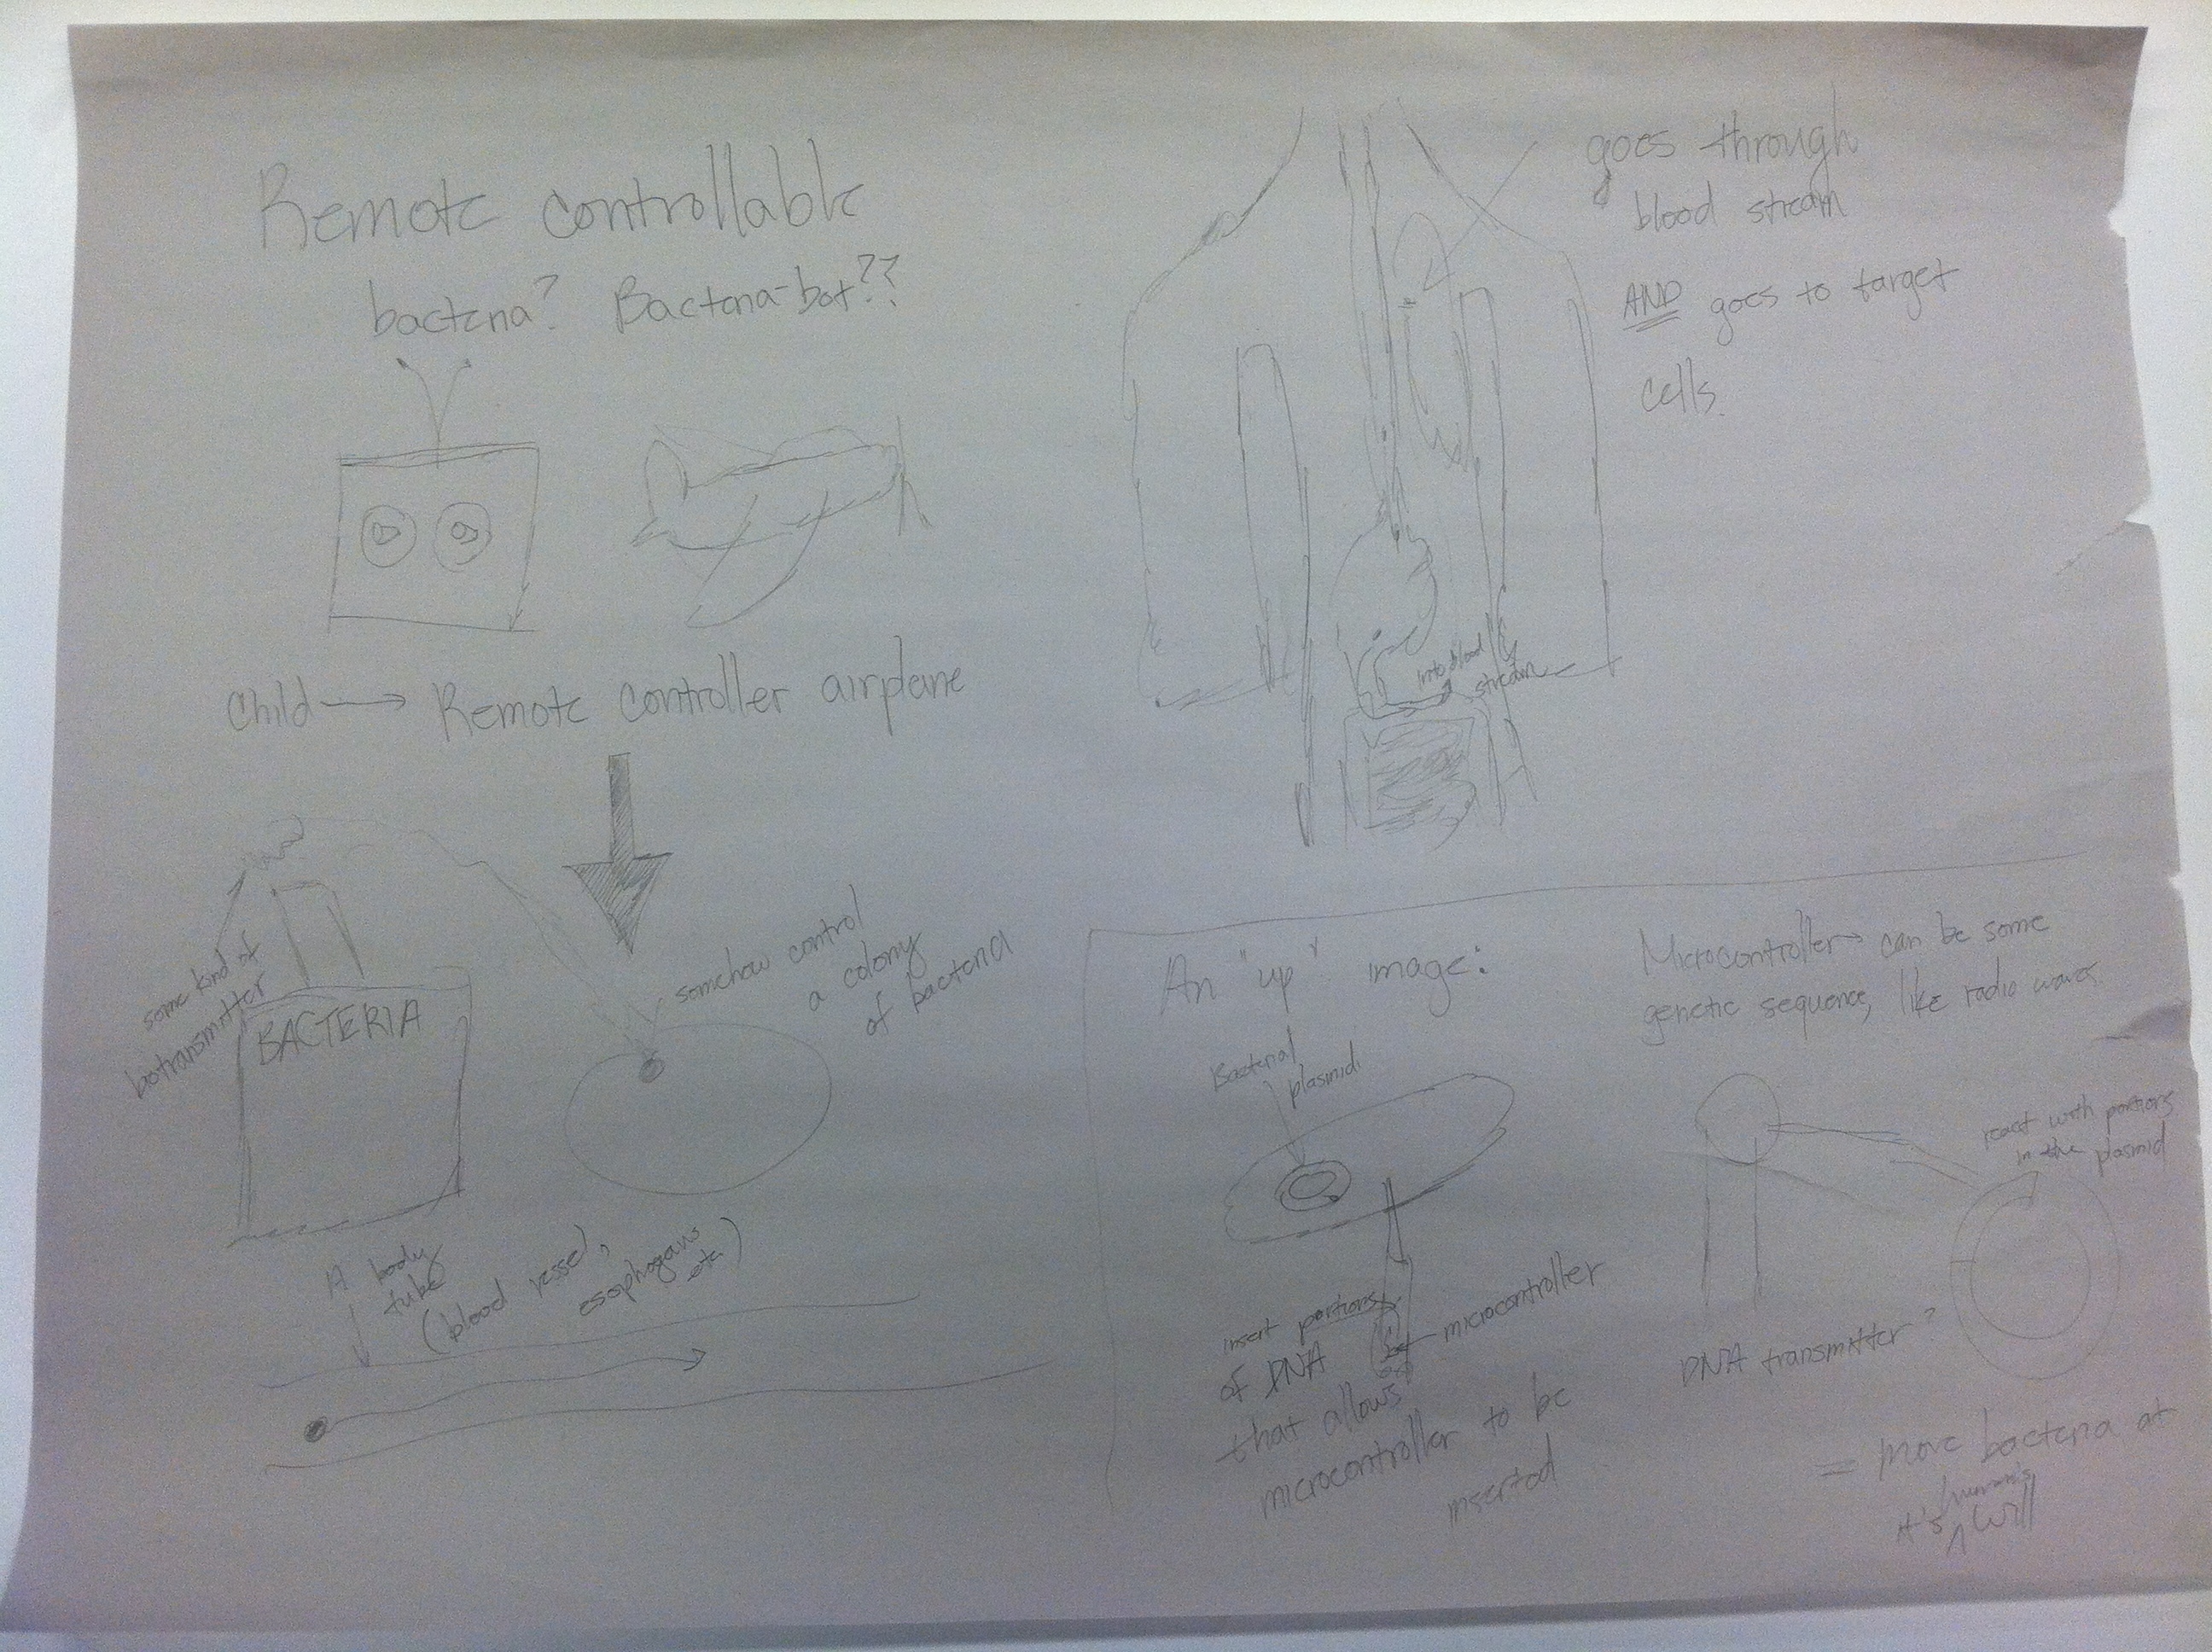 Remote controllable
bacteria? Bacteria-bot??
Child → Remote controller airplane
some kind of
biotransmitter
BACTERIA
somehow control
a colony
of bacteria
A body
tube
(blood vessel,
esophogans
etc)
goes through
blood stream
AND goes to target
cells.
into blood
stream
An "up" image:
Bacterial
plasmid
insert portions
of DNA
that allows
microcontroller to be
inserted
microcontroller
Microcontroller → can be some
genetic sequence, like radio waves
react with portions
in the plasmid
DNA transmitter?
= move bacteria at
human's
it's ^ will